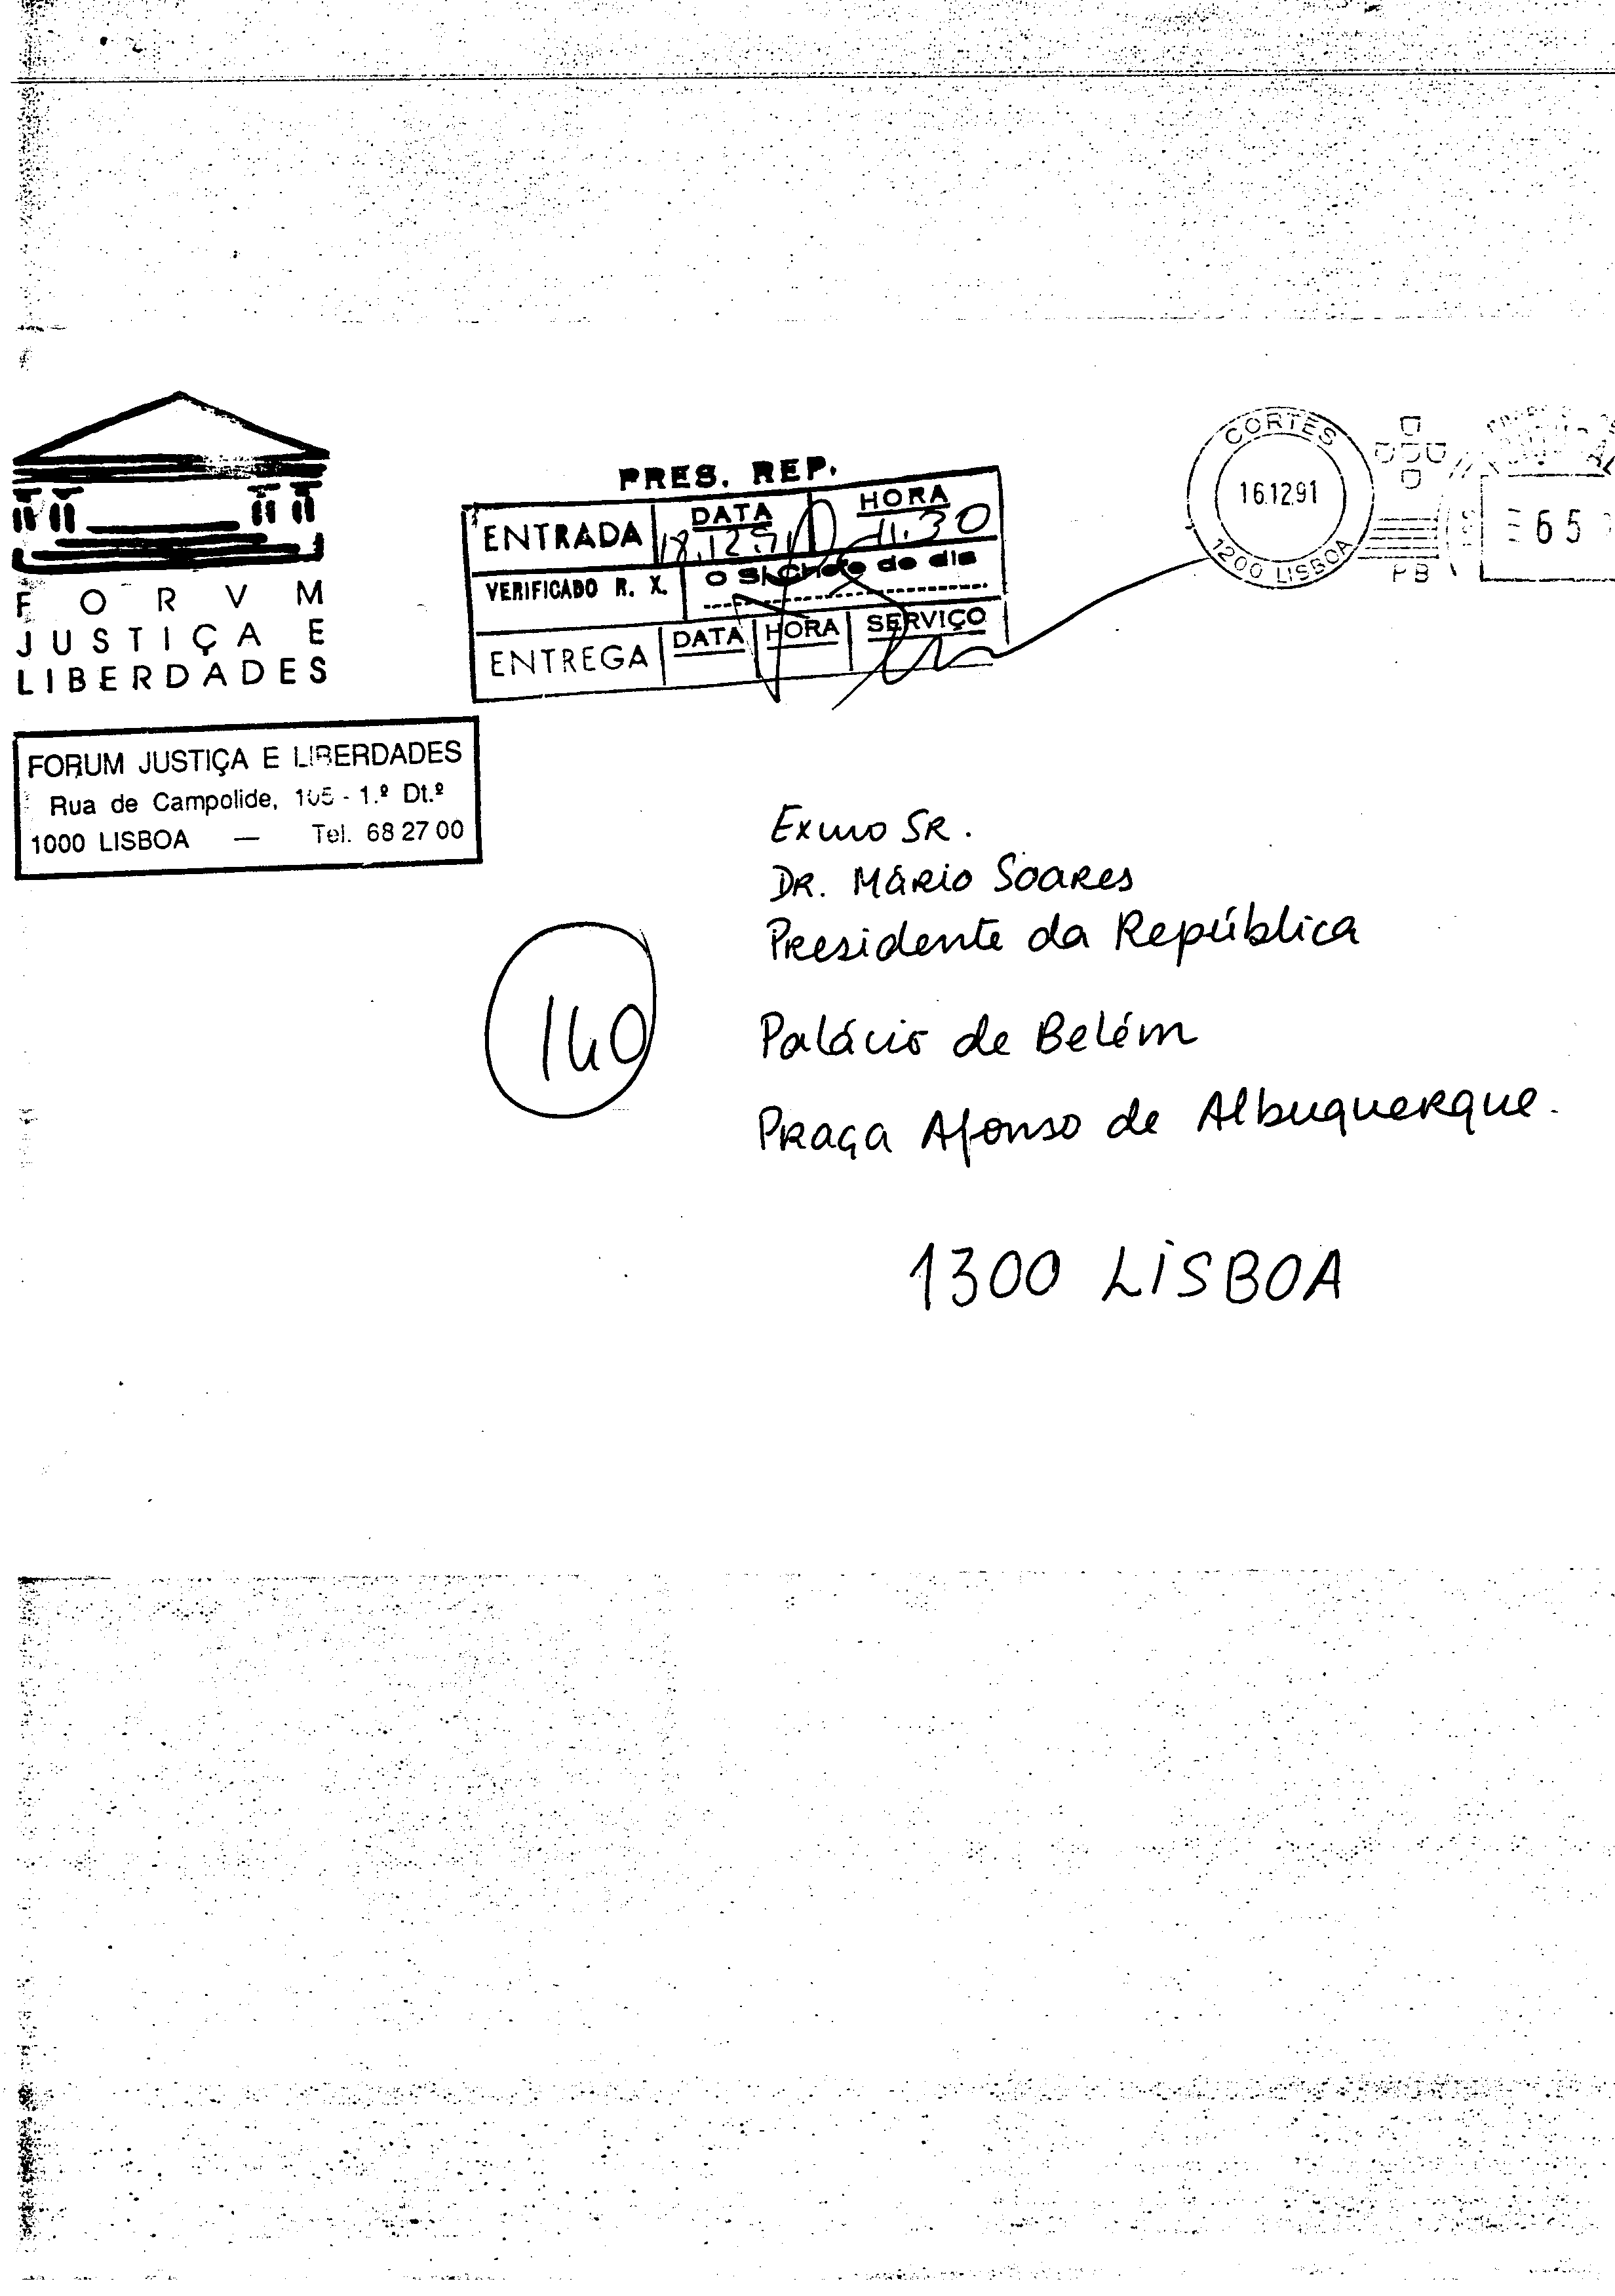 F O R V M
JUSTIÇA E
LIBERDADES
FORUM JUSTIÇA E LIBERDADES
Rua de Campolide, 105 - 1.º Dt.º
1000 LISBOA — Tel. 68 27 00
PRES. REP.
ENTRADA DATA HORA
18.12.91 11.30
VERIFICADO R. X. O Sr. Chefe do dia
ENTREGA DATA HORA SERVIÇO
CORTES
16.12.91
1200 LISBOA
PB
65
Exmo SR.
DR. Mário Soares
Presidente da República
140
Palácio de Belém
Praça Afonso de Albuquerque.
1300 LISBOA